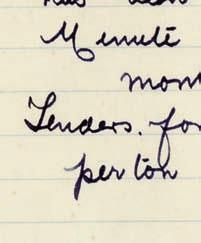 Minute
mon
Tenders. for
per ton